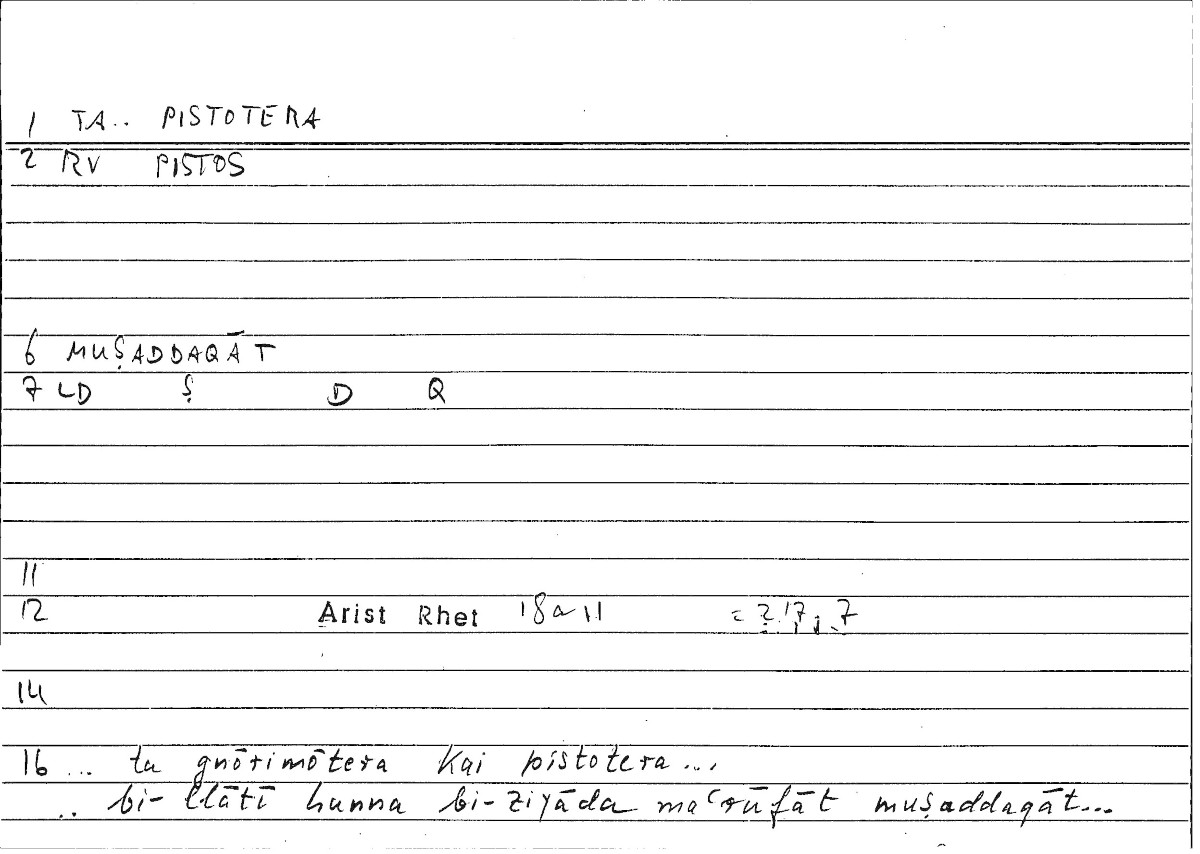 1 TA.. PISTOTERA
2 RV PISTOS
6 MUṢADDAQĀT
7 LD Ṣ D Q
11
12 Arist Rhet 18a11 = 217,7
14
16 ... ta gnōrimōtera kai pistotera...
.. bi-llātī hunna bi-ziyāda maʿrūfāt muṣaddaqāt...